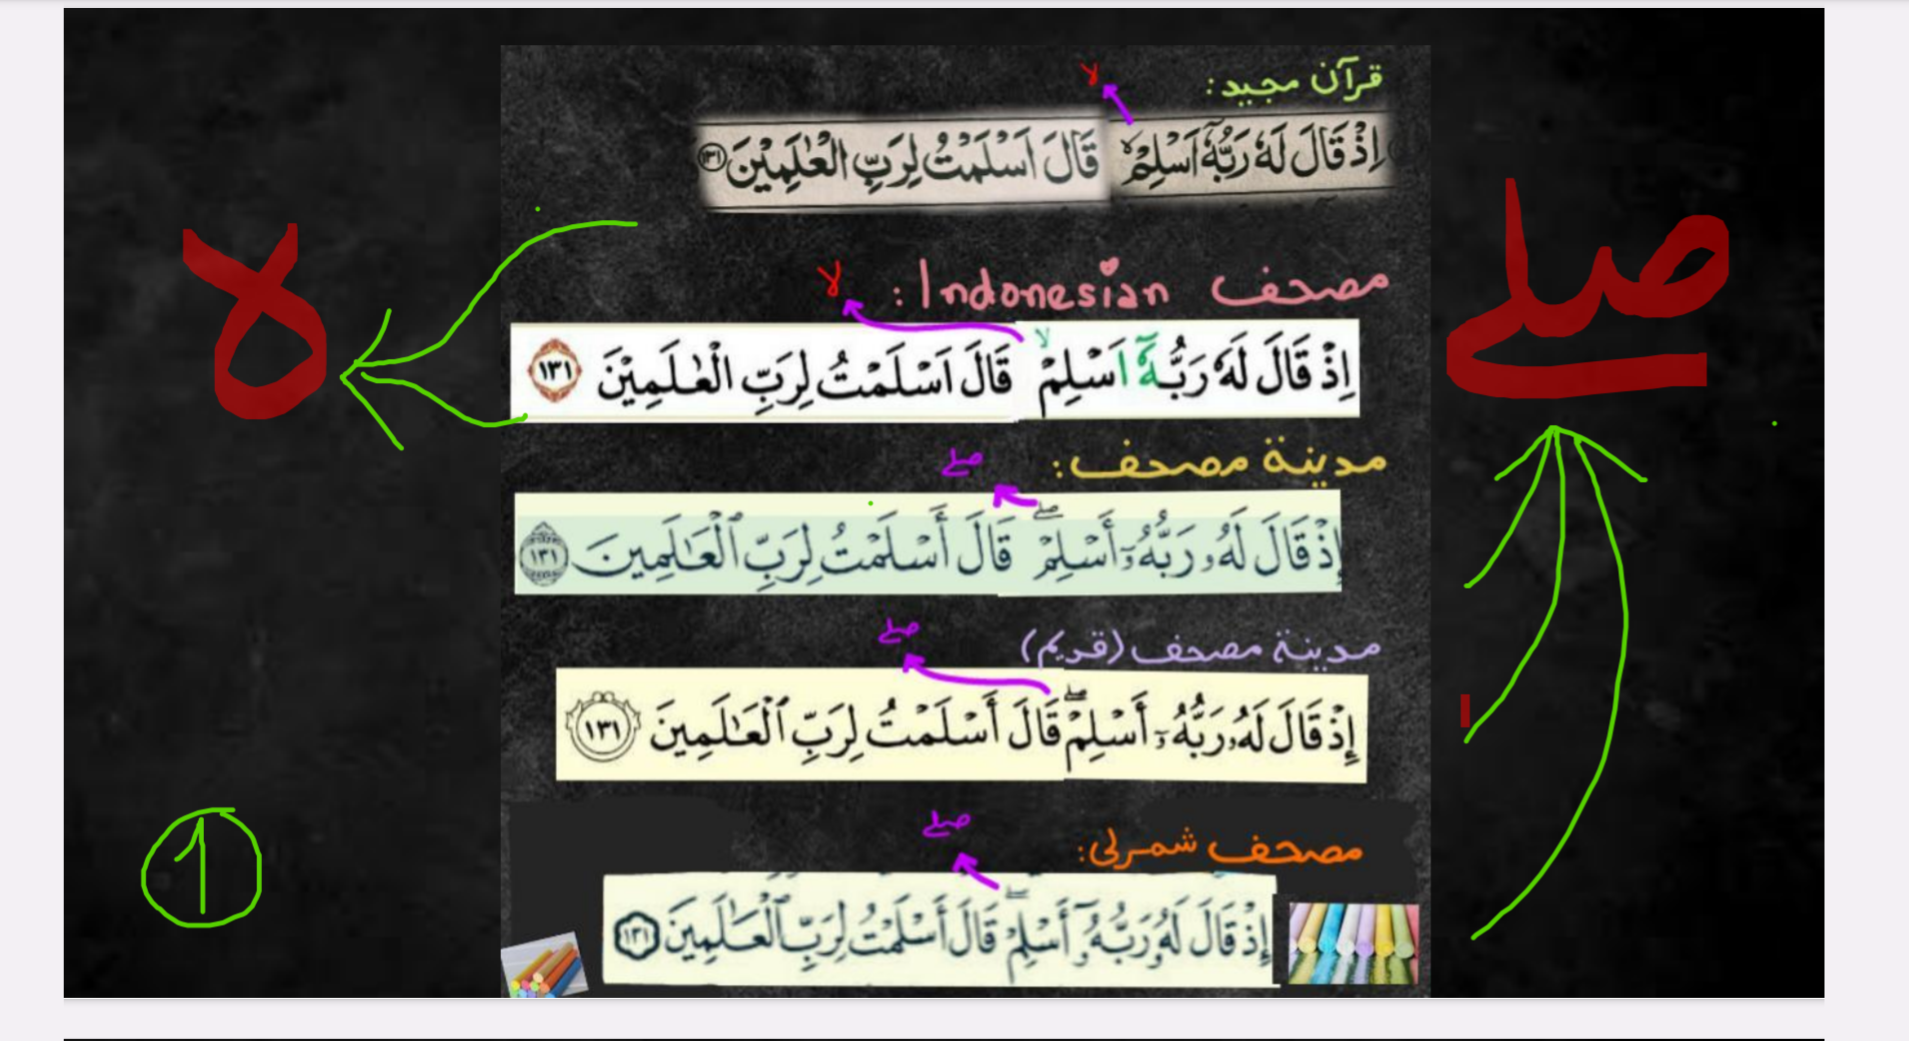 قرآن مجيد:
لا
اِذْ قَالَ لَهٗ رَبُّهٗۤ اَسْلِمْۙ قَالَ اَسْلَمْتُ لِرَبِّ الْعٰلَمِيْنَ ١٣١
مصحف Indonesian:
لا
اِذْ قَالَ لَهٗ رَبُّهٗٓ اَسْلِمْۙ قَالَ اَسْلَمْتُ لِرَبِّ الْعٰلَمِيْنَ ١٣١
مدينة مصحف:
صلے
إِذْ قَالَ لَهُۥ رَبُّهُۥٓ أَسْلِمْۖ قَالَ أَسْلَمْتُ لِرَبِّ ٱلْعَٰلَمِينَ ١٣١
مدينة مصحف (قديم)
صلے
إِذْ قَالَ لَهُۥ رَبُّهُۥٓ أَسْلِمْۖ قَالَ أَسْلَمْتُ لِرَبِّ ٱلْعَٰلَمِينَ ١٣١
مصحف شمرلی:
صلے
إِذْ قَالَ لَهُۥ رَبُّهُۥٓ أَسْلِمْۖ قَالَ أَسْلَمْتُ لِرَبِّ ٱلْعَٰلَمِينَ ١٣١
صلے
لا
1